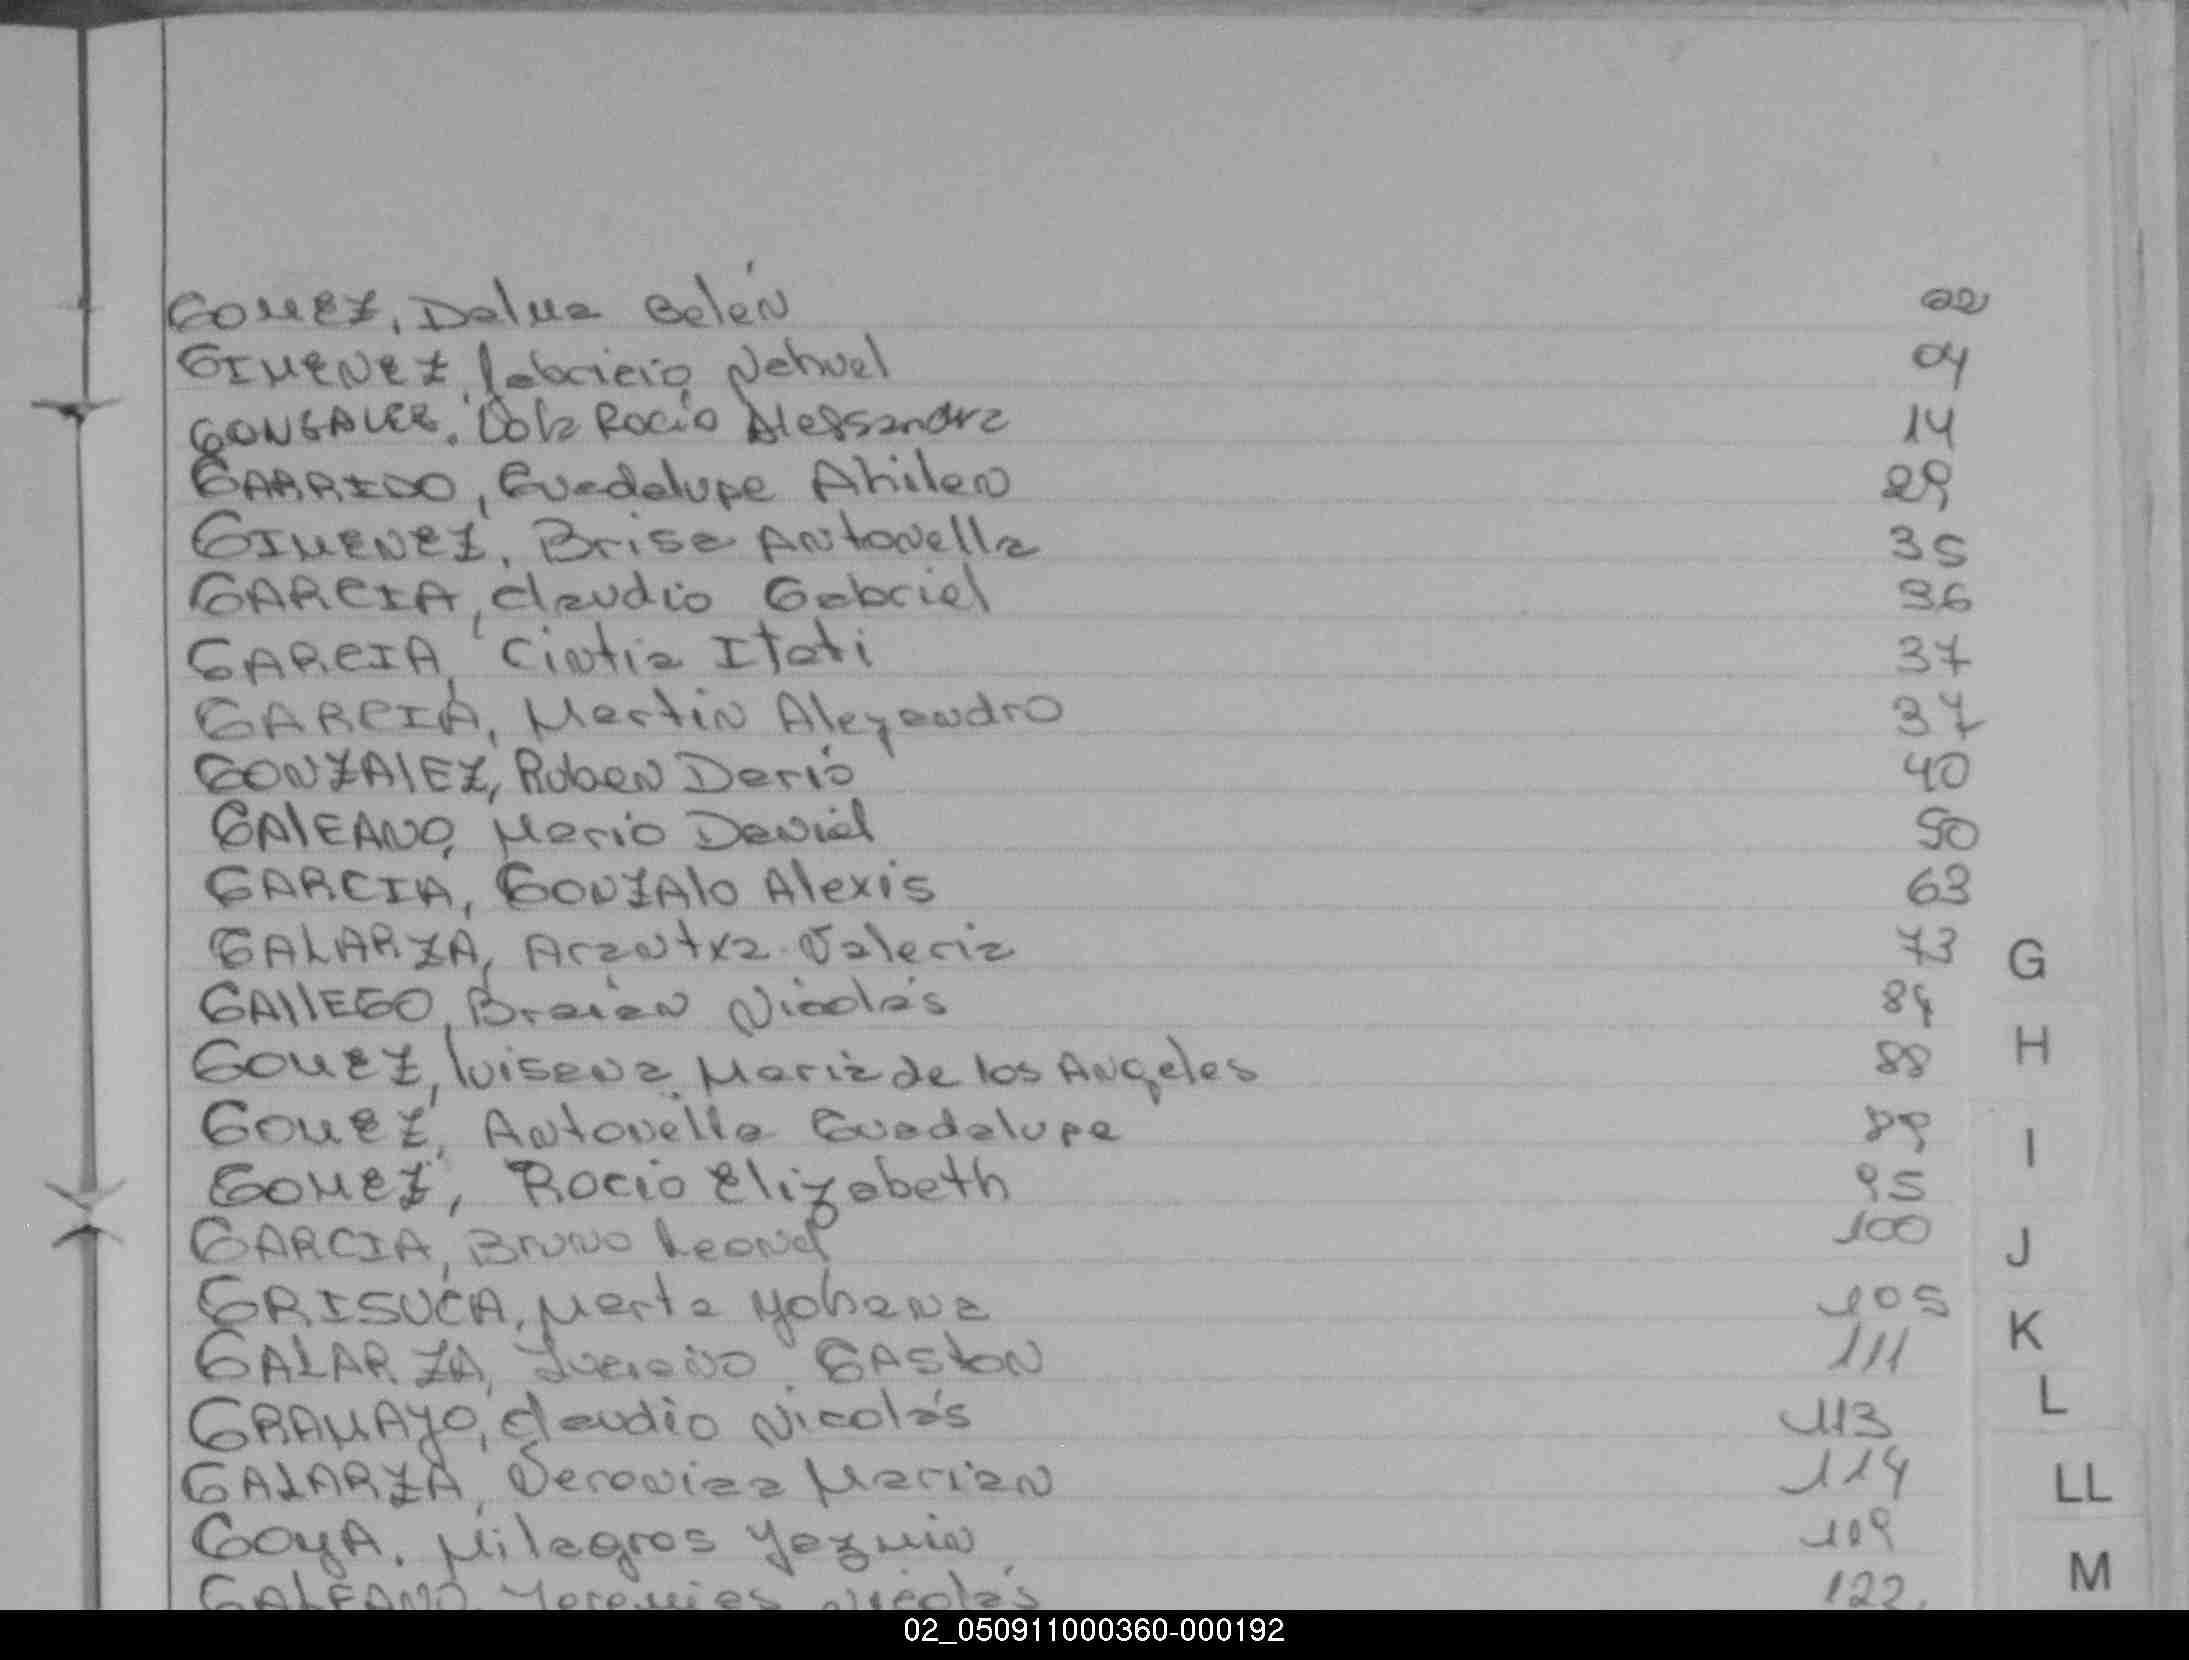 GOMEZ, Dalma Belén 02
GIMENEZ, fabricio Nahuel 04
GONSALES, Rocio Alessandra 14
GARRIDO, Guadalupe Ahilen 29
GIMENEZ, Brisa Antonella 35
GARCIA, Claudio Gabriel 36
GARCIA, Cintia Itati 37
GARCIA, Martin Alejandro 37
GONZAlEZ, Ruben Dario 40
GAlEANO, Mario Daniel 50
GARCIA, GONZAlo Alexis 63
GALARZA, Arantxa Valeria 73
GAllEGO, Braian Nicolás 84
GOMEZ, luisana Maria de los Angeles 88
GOMEZ, Antonella Guadalupe 89
GOMEZ, Rocio Elizabeth 95
GARCIA, Bruno Leonel 100
GRISUCA, Marta Yohana 105
GALARZA, Luciano GAStON 111
GRAMAYO, Claudio Nicolás 113
GALARZA, Veronica Marian 114
GOYA, Milagros Yazmin 119
GALEANO, Jeremias Nicolás 122
G
H
I
J
K
L
LL
M
02_050911000360-000192